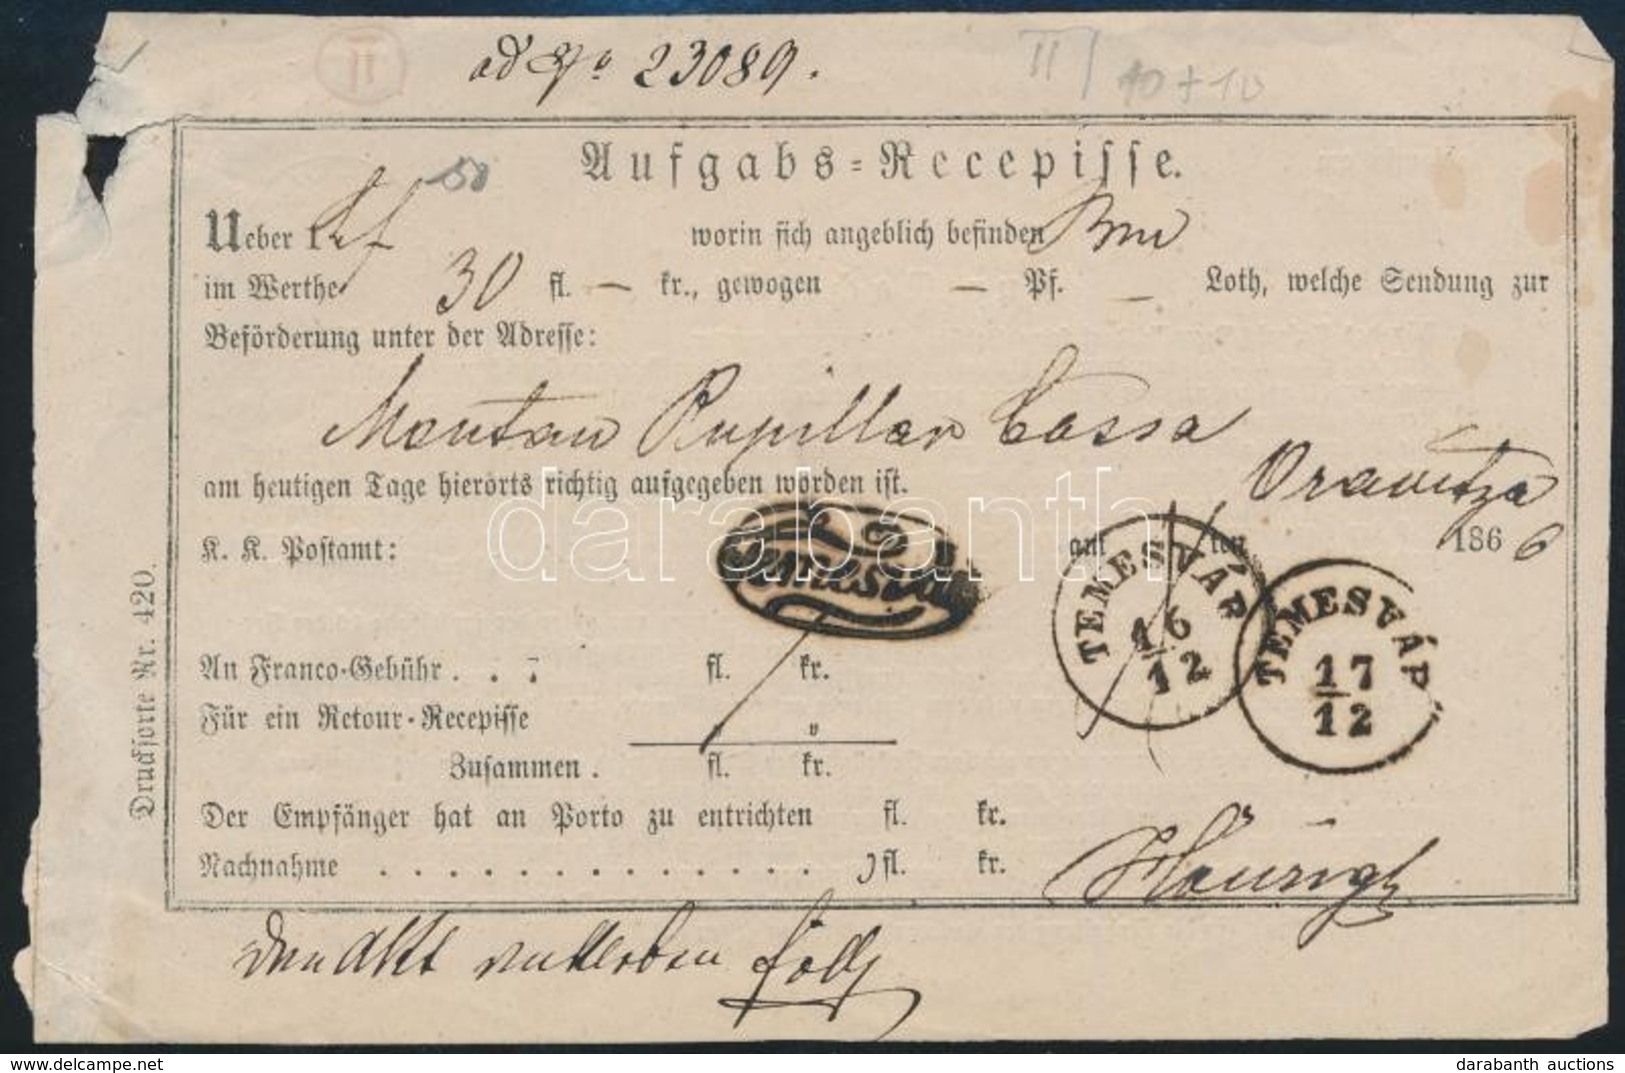 II
ad No 23089.
II 10+10
50
Aufgabs-Recepisse.
Ueber 1 worin sich angeblich befinden
im Werthe 30 fl. — kr., gewogen — Pf. — Loth, welche Sendung zur
Beförderung unter der Adresse:
Montan Pupillar Cassa
Oravitza
am heutigen Tage hierorts richtig aufgegeben worden ist.
K. K. Postamt: am ten 1866
TEMESVÁR 16/12
TEMESVÁR 17/12
An Franco-Gebühr . . . fl. kr.
Für ein Retour-Recepisse " "
Zusammen . fl. kr.
Der Empfänger hat an Porto zu entrichten fl. kr.
Nachnahme . . . . . . . . . . . . . . fl. kr.
Drucksorte Nr. 420.
darabanth
www.delcampe.net
darabanth auctions